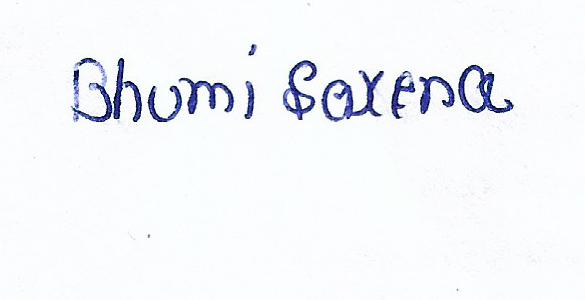 Bhumi Saxena